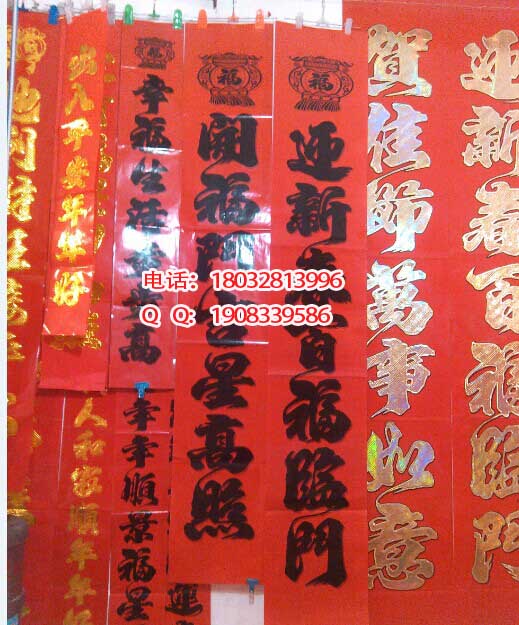 迎新春百福臨門
賀佳節萬事如意
福
迎新春百福臨門
福
開福門吉星高照
福
幸福生活步步高
年年順景福星
出入平安年年好
人和家順年年好
电话：18032813996
Q Q：1908339586